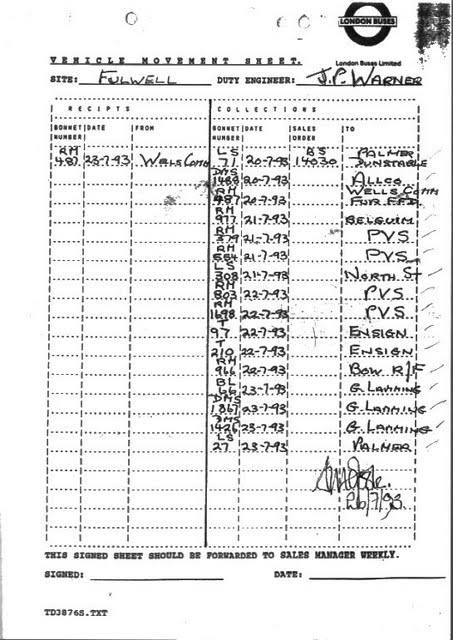 LONDON BUSES
VEHICLE MOVEMENT SHEET.
London Buses Limited
SITE: FULWELL DUTY ENGINEER: J.P. WARNER
RECEIPTS COLLECTIONS
BONNET NUMBER DATE FROM BONNET NUMBER DATE SALES ORDER TO
RM 487 23-7-93 WELLS COMM LS 71 20-7-93 BS 14030 PALMER DUNSTABLE
DMS 1488 20-7-93 ALLCO
RM 487 20-7-93 WELLS COMM FOR F.F.D.
RM 977 21-7-93 BELGUIM
RM 379 21-7-93 PVS
RM 684 21-7-93 PVS
LS 308 21-7-93 NORTH ST
RM 803 22-7-93 PVS
RM 1698 22-7-93 PVS
T 97 22-7-93 ENSIGN
T 210 22-7-93 ENSIGN
RM 966 22-7-93 BOW R/F
BL 66 23-7-93 G. LAMMING
DMS 1367 23-7-93 G. LAMMING
DMS 1426 23-7-93 G. LAMMING
LS 27 23-7-93 PALMER
26/7/93
THIS SIGNED SHEET SHOULD BE FORWARDED TO SALES MANAGER WEEKLY.
SIGNED: DATE:
TD3876S.TXT